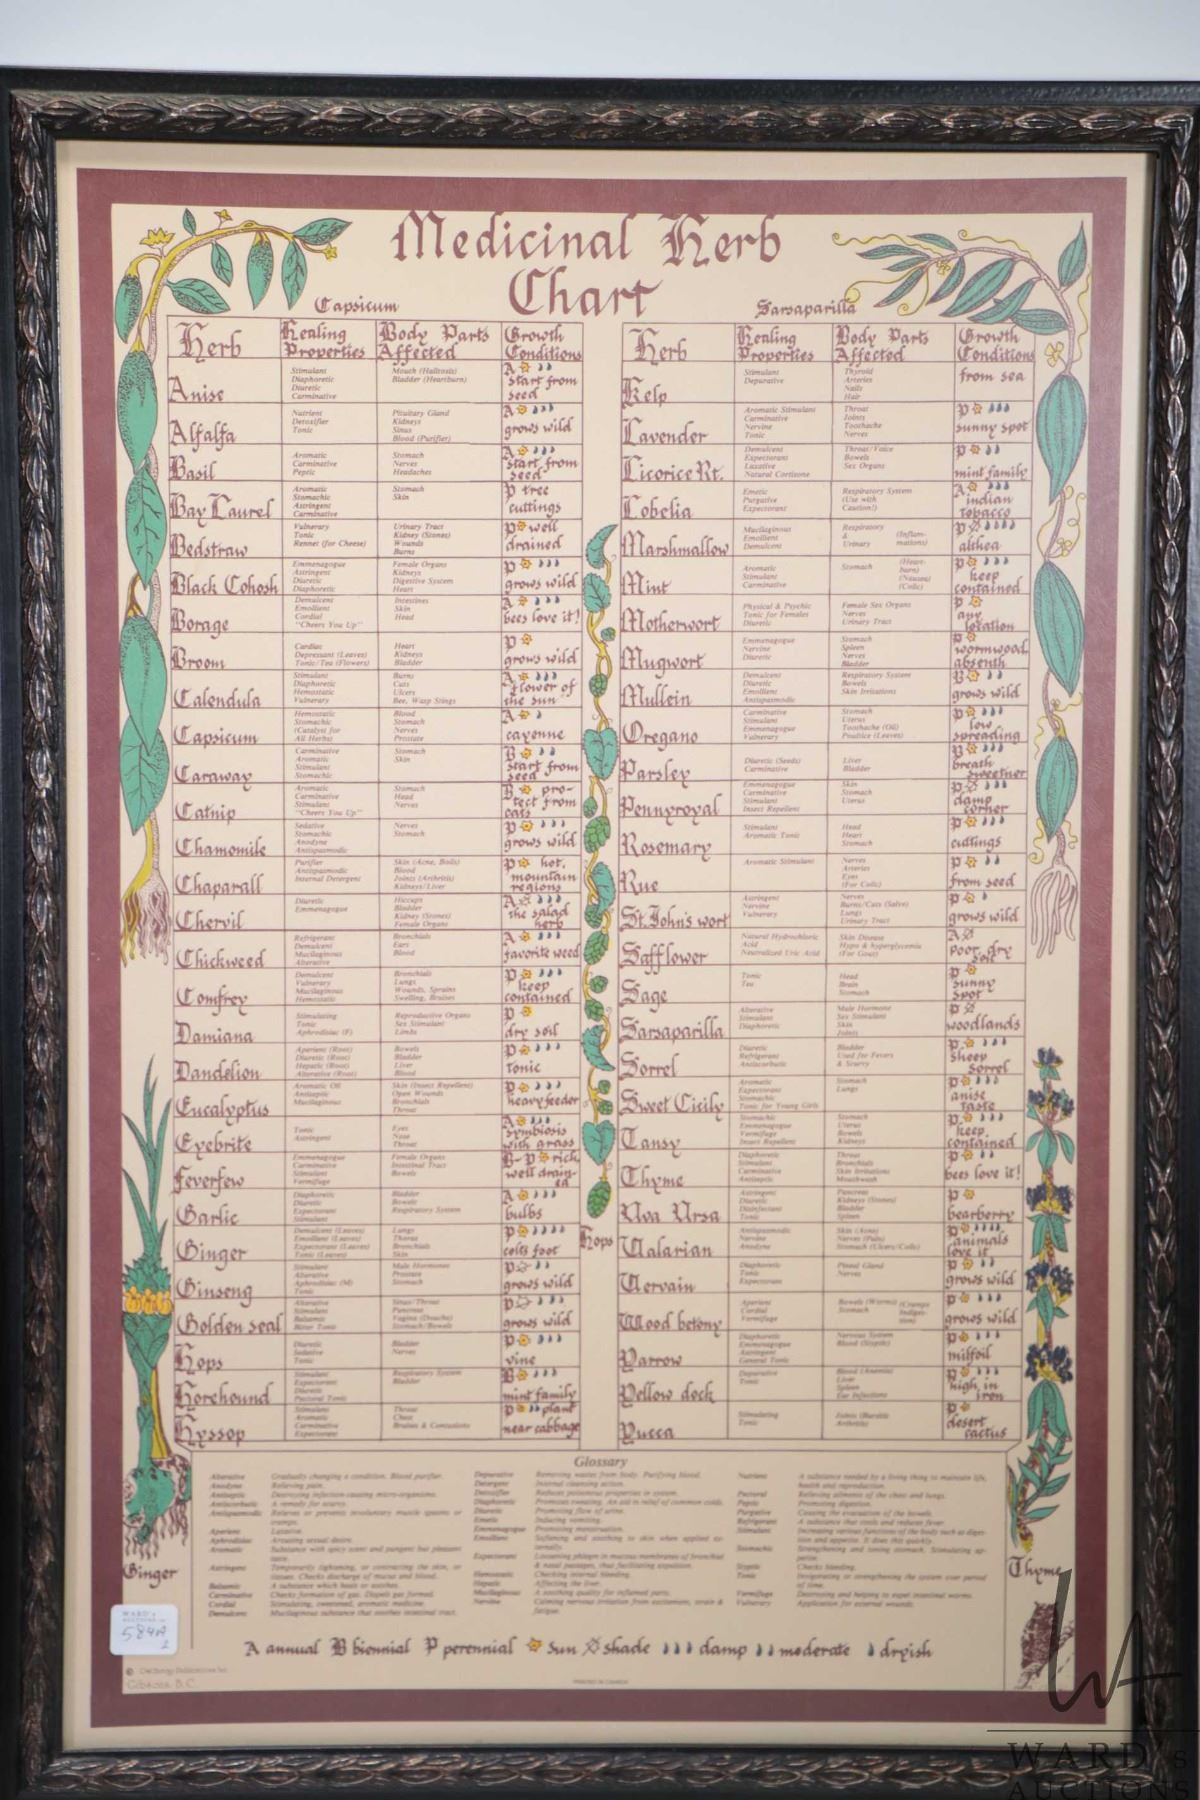 Medicinal Herb
Chart
Capsicum
Sarsaparilla
Herb
Healing Properties
Body Parts Affected
Growth Conditions
Anise
Stimulant
Diaphoretic
Diuretic
Carminative
Mouth (Halitosis)
Bladder (Heartburn)
A
start from
seed
Alfalfa
Nutrient
Detoxifier
Tonic
Pituitary Gland
Kidneys
Sinus
Blood (Purifier)
A
grows wild
Basil
Aromatic
Carminative
Peptic
Stomach
Nerves
Headaches
A
start from
seed
Bay Laurel
Aromatic
Stomachic
Astringent
Carminative
Stomach
Skin
P tree
cuttings
Bedstraw
Vulnerary
Tonic
Rennet (for Cheese)
Urinary Tract
Kidney (Stones)
Wounds
Burns
P well
drained
Black Cohosh
Emmenagogue
Astringent
Diuretic
Diaphoretic
Female Organs
Kidneys
Digestive System
Heart
P
grows wild
Borage
Demulcent
Emollient
Cordial
"Cheers You Up"
Intestines
Skin
Head
A
bees love it!
Broom
Cardiac
Depressant (Leaves)
Tonic/Tea (Flowers)
Heart
Kidneys
Bladder
P
grows wild
Calendula
Stimulant
Diaphoretic
Hemostatic
Vulnerary
Burns
Cuts
Ulcers
Bee, Wasp Stings
A
flower of
the sun
Capsicum
Hemostatic
Stomachic
(Catalyst for
All Herbs)
Blood
Stomach
Nerves
Prostate
A
cayenne
Caraway
Carminative
Aromatic
Stimulant
Stomachic
Stomach
Skin
B
start from
seed
Catnip
Aromatic
Carminative
Stimulant
"Cheers You Up"
Stomach
Head
Nerves
B pro-
tect from
cats
Chamomile
Sedative
Stomachic
Anodyne
Antispasmodic
Nerves
Stomach
P
grows wild
Chaparall
Purifier
Antispasmodic
Internal Detergent
Skin (Acne, Boils)
Blood
Joints (Arthritis)
Kidneys/Liver
P hot,
mountain
regions
Chervil
Diuretic
Emmenagogue
Hiccups
Bladder
Kidney (Stones)
Female Organs
A
the salad
herb
Chickweed
Refrigerant
Demulcent
Mucilaginous
Alterative
Bronchials
Ears
Blood
A
favorite weed
Comfrey
Demulcent
Vulnerary
Mucilaginous
Hemostatic
Bronchials
Lungs
Wounds, Sprains
Swelling, Bruises
P
keep
contained
Damiana
Stimulating
Tonic
Aphrodisiac (F)
Reproductive Organs
Sex Stimulant
Limbs
P
dry soil
Dandelion
Aperient (Root)
Diuretic (Root)
Hepatic (Root)
Alterative (Root)
Bowels
Bladder
Liver
Blood
P
tonic
Eucalyptus
Aromatic Oil
Antiseptic
Mucilaginous
Skin (Insect Repellent)
Open Wounds
Bronchials
Throat
P
heavy feeder
Eyebrite
Tonic
Astringent
Eyes
Nose
Throat
A
symbiosis
with grass
Feverfew
Emmenagogue
Carminative
Stimulant
Vermifuge
Female Organs
Intestinal Tract
Bowels
B-P rich
well drain-
ed
Garlic
Diaphoretic
Diuretic
Expectorant
Stimulant
Bladder
Bowels
Respiratory System
A
bulbs
Ginger
Demulcent (Leaves)
Emollient (Leaves)
Expectorant (Leaves)
Tonic (Leaves)
Lungs
Thorax
Bronchials
Skin
P
colts foot
Ginseng
Stimulant
Alterative
Aphrodisiac (M)
Tonic
Male Hormones
Prostate
Stomach
P
grows wild
Golden seal
Alterative
Stimulant
Balsamic
Bitter Tonic
Sinus/Throat
Pancreas
Vagina (Douche)
Stomach/Bowels
P
grows wild
Hops
Diuretic
Sedative
Tonic
Bladder
Nerves
P
vine
Horehound
Stimulant
Expectorant
Diuretic
Pectoral Tonic
Respiratory System
Bladder
B
mint family
Hyssop
Stimulant
Aromatic
Carminative
Expectorant
Throat
Chest
Bruises & Contusions
P plant
near cabbage
Herb
Healing Properties
Body Parts Affected
Growth Conditions
Kelp
Stimulant
Depurative
Thyroid
Arteries
Nails
Hair
from sea
Lavender
Aromatic Stimulant
Carminative
Nervine
Tonic
Throat
Joints
Toothache
Nerves
P
sunny spot
Licorice Rt.
Demulcent
Expectorant
Laxative
Natural Cortisone
Throat/Voice
Bowels
Sex Organs
P
mint family
Lobelia
Emetic
Purgative
Expectorant
Respiratory System
(Use with
Caution!)
A
indian
tobacco
Marshmallow
Mucilaginous
Emollient
Demulcent
Respiratory
&
Urinary
(Inflam-
mations)
P
althea
Mint
Aromatic
Stimulant
Carminative
Stomach
(Heart-
burn)
(Nausea)
(Colic)
P
keep
contained
Motherwort
Physical & Psychic
Tonic for Females
Diuretic
Female Sex Organs
Nerves
Urinary Tract
P
any
location
Mugwort
Emmenagogue
Nervine
Diuretic
Stomach
Spleen
Nerves
Bladder
P
wormwood
absenth
Mullein
Demulcent
Diuretic
Emollient
Antispasmodic
Respiratory System
Bowels
Skin Irritations
B
grows wild
Oregano
Carminative
Stimulant
Emmenagogue
Vulnerary
Stomach
Uterus
Toothache (Oil)
Poultice (Leaves)
P
low
spreading
Parsley
Diuretic (Seeds)
Carminative
Liver
Bladder
B
breath
sweetner
Pennyroyal
Emmenagogue
Carminative
Stimulant
Insect Repellent
Skin
Stomach
Uterus
P
damp
corner
Rosemary
Stimulant
Aromatic Tonic
Head
Heart
Stomach
P
cuttings
Rue
Aromatic Stimulant
Nerves
Arteries
Eyes
(For Colic)
P
from seed
St. John's wort
Astringent
Nervine
Vulnerary
Nerves
Burns/Cuts (Salve)
Lungs
Urinary Tract
P
grows wild
Safflower
Natural Hydrochloric
Acid
Neutralized Uric Acid
Skin Disease
Hypo & hyperglycemia
(For Gout)
A
poor, dry
soil
Sage
Tonic
Tea
Head
Brain
Stomach
P
sunny
spot
Sarsaparilla
Alterative
Stimulant
Diaphoretic
Male Hormone
Sex Stimulant
Skin
Joints
P
woodlands
Sorrel
Diuretic
Refrigerant
Anticorbutic
Bladder
Used for Fevers
& Scurvy
P
sheep
sorrel
Sweet Cicily
Aromatic
Expectorant
Stomachic
Tonic for Young Girls
Stomach
Lungs
P
anise
taste
Tansy
Stomachic
Emmenagogue
Vermifuge
Insect Repellent
Stomach
Uterus
Bowels
Kidneys
P
keep
contained
Thyme
Diaphoretic
Stimulant
Carminative
Antiseptic
Throat
Bronchials
Skin Irritations
Mouthwash
P
bees love it!
Uva Ursa
Astringent
Diuretic
Disinfectant
Tonic
Pancreas
Kidneys (Stones)
Bladder
Spleen
P
bearberry
Valarian
Antispasmodic
Nervine
Anodyne
Skin (Acne)
Nerves (Pain)
Stomach (Ulcers/Colic)
P
animals
love it
Vervain
Diaphoretic
Tonic
Expectorant
Pineal Gland
Nerves
P
grows wild
Wood betony
Aperient
Cordial
Vermifuge
Bowels (Worms)
Stomach
(Cramps
Indiges-
tion)
P
grows wild
Yarrow
Diaphoretic
Emmenagogue
Astringent
General Tonic
Nervous System
Blood (Styptic)
P
milfoil
Yellow dock
Depurative
Tonic
Blood (Anemia)
Liver
Spleen
Ear Infections
P
high in
iron
Yucca
Stimulating
Tonic
Joints (Bursitis
Arthritis)
P
desert
cactus
Hops
Ginger
Thyme
Glossary
Alterative Gradually changing a condition. Blood purifier.
Anodyne Relieving pain.
Antiseptic Destroying infection-causing micro-organisms.
Antiscorbutic A remedy for scurvy.
Antispasmodic Relieves or prevents involuntary muscle spasms or
cramps.
Aperient Laxative.
Aphrodisiac Arousing sexual desire.
Aromatic Substance with spicy scent and pungent but pleasant
taste.
Astringent Temporarily tightening, or contracting the skin, or
tissues. Checks discharge of mucus and blood.
Balsamic A substance which heals or soothes.
Carminative Checks formation of gas. Dispels gas formed.
Cordial Stimulating, sweetened, aromatic medicine.
Demulcent Mucilaginous substance that soothes intestinal tract.
Depurative Removing wastes from body. Purifying blood.
Detergent Internal cleansing action.
Detoxifier Reduces poisonous properties in system.
Diaphoretic Promotes sweating. An aid in relief of common colds.
Diuretic Promoting flow of urine.
Emetic Inducing vomiting.
Emmenagogue Promoting menstruation.
Emollient Softening and soothing to skin when applied ex-
ternally.
Expectorant Loosening phlegm in mucous membranes of bronchial
& nasal passages, thus facilitating expulsion.
Hemostatic Checking internal bleeding.
Hepatic Affecting the liver.
Mucilaginous A soothing quality for inflamed parts.
Nervine Calming nervous irritation from excitement, strain &
fatigue.
Nutrient A substance needed by a living thing to maintain life,
health and reproduction.
Pectoral Relieving ailments of the chest and lungs.
Peptic Promoting digestion.
Purgative Causing the evacuation of the bowels.
Refrigerant A substance that cools and reduces fever.
Stimulant Increasing various functions of the body such as diges-
tion and appetite. It does this quickly.
Stomachic Strengthening and toning stomach. Stimulating ap-
petite.
Styptic Checks bleeding.
Tonic Invigorating or strengthening the system over period
of time.
Vermifuge Destroying and helping to expel intestinal worms.
Vulnerary Application for external wounds.
A annual B biennial P perennial sun shade damp moderate dryish
WARD'S
584A
2
©
Gibsons B.C.
PRINTED IN CANADA
WA
WARD's
AUCTIONS